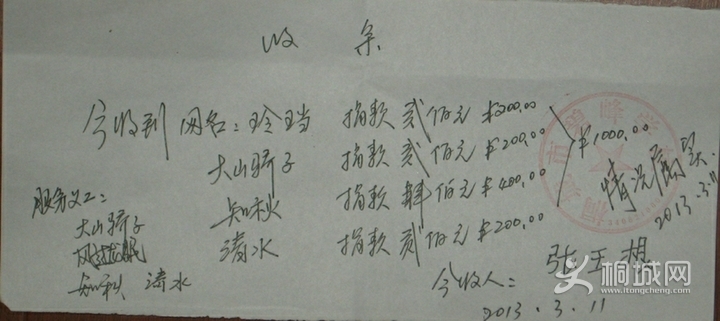 收条
今收到 网名：玲珰 捐款 贰佰元 ¥200.00
大山骄子 捐款 贰佰元 ¥200.00
知秋 捐款 肆佰元 ¥400.00
清水 捐款 贰佰元 ¥200.00
¥1000.00
情况属实
2013.3.11
服务义工：
大山骄子
知秋 清水
今收人：张玉想
2013.3.11
桐城网
www.itongcheng.com